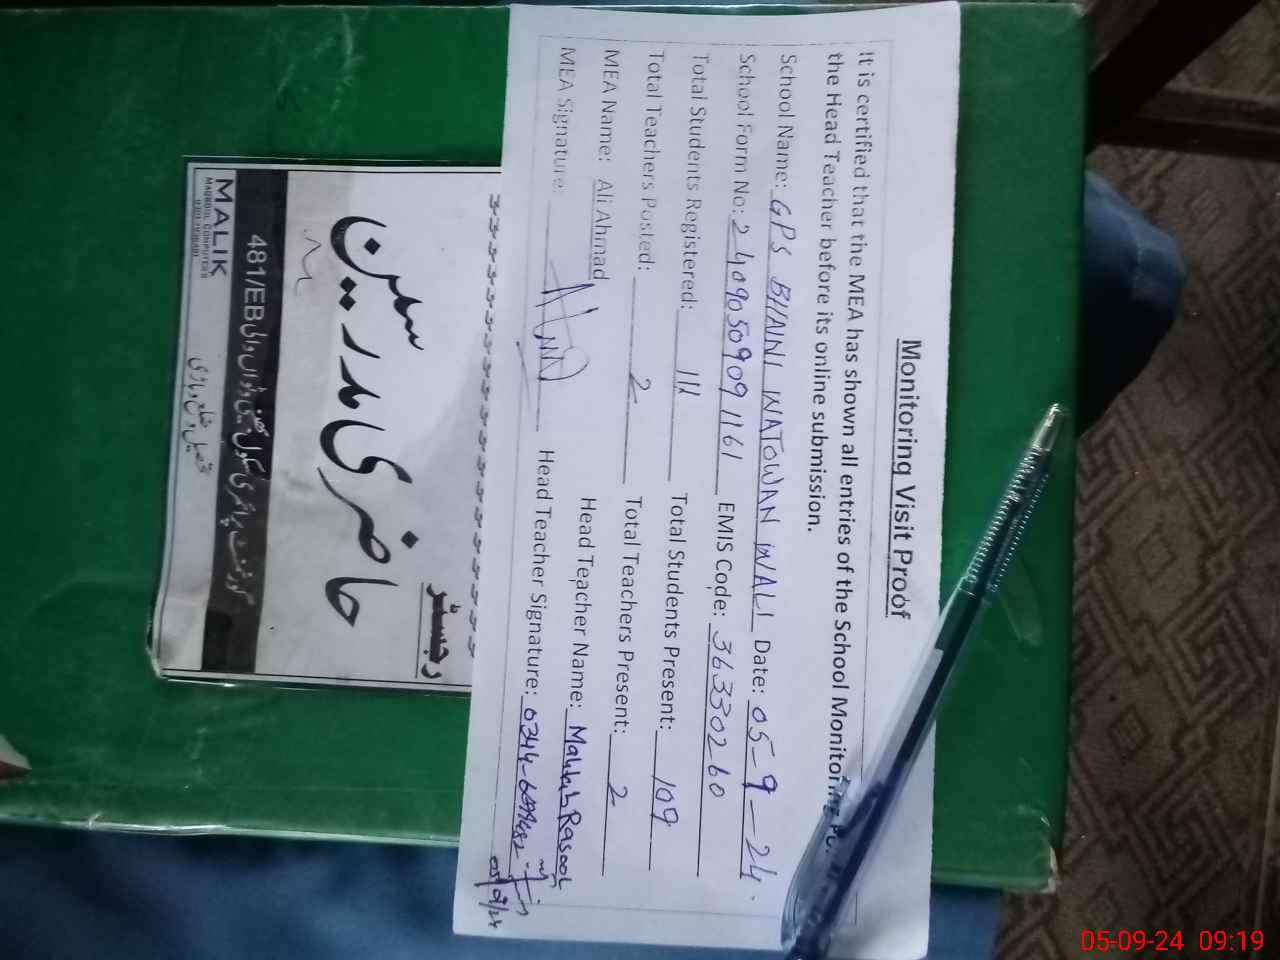 Monitoring Visit Proof
It is certified that the MEA has shown all entries of the School Monitoring
the Head Teacher before its online submission.
School Name: GPS BHAINI WATOWAN WALI Date: 05-9-24
School Form No: 2409050909 1161 EMIS Code: 36330260
Total Students Registered: 111 Total Students Present: 109
Total Teachers Posted: 2 Total Teachers Present: 2
MEA Name: Ali Ahmad Head Teacher Name: Rasool
MEA Signature: Head Teacher Signature: 0344-
05/09/24
رجسٹر
حاضری مدرسین
گورنمنٹ پرائمری سکول بھینی وٹواں والی 481/EB
MALIK
MAQBOOL COMPUTERS
تحصیل و ضلع وہاڑی
05-09-24 09:19